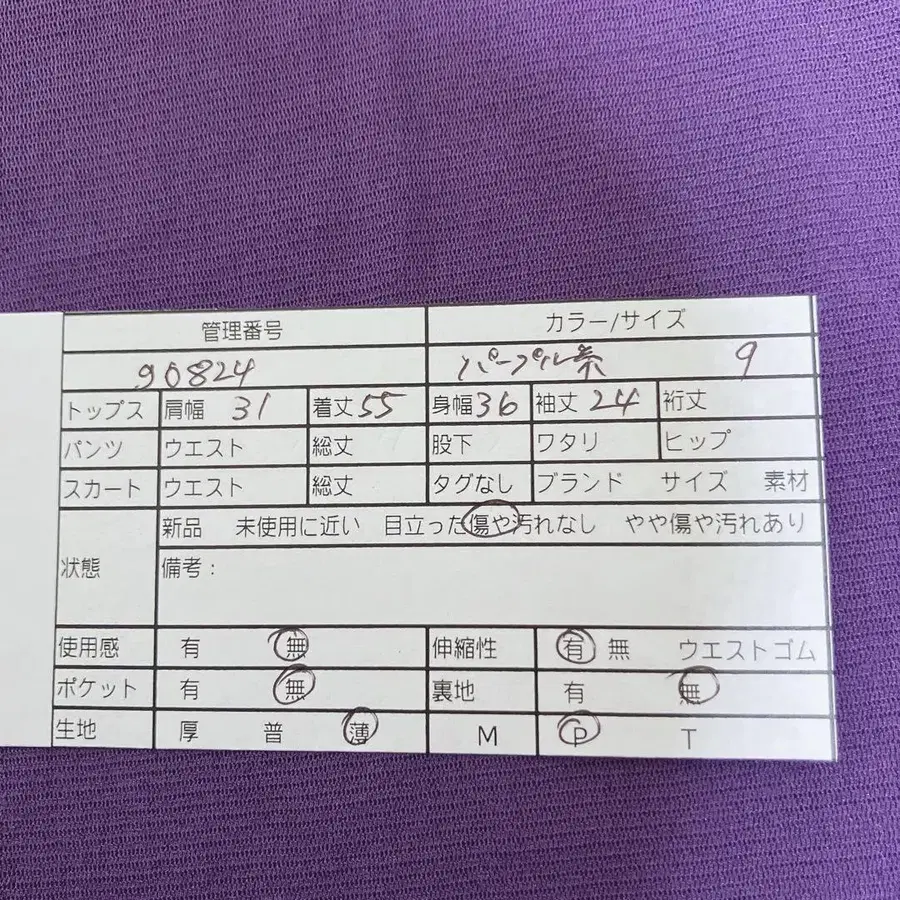 管理番号 カラー/サイズ
90824 パープル系 9
トップス 肩幅 31 着丈 55 身幅 36 袖丈 24 裄丈
パンツ ウエスト 総丈 股下 ワタリ ヒップ
スカート ウエスト 総丈 タグなし ブランド サイズ 素材
状態 新品 未使用に近い 目立った傷や汚れなし やや傷や汚れあり
備考：
使用感 有 無 伸縮性 有 無 ウエストゴム
ポケット 有 無 裏地 有 無
生地 厚 普 薄 M P T